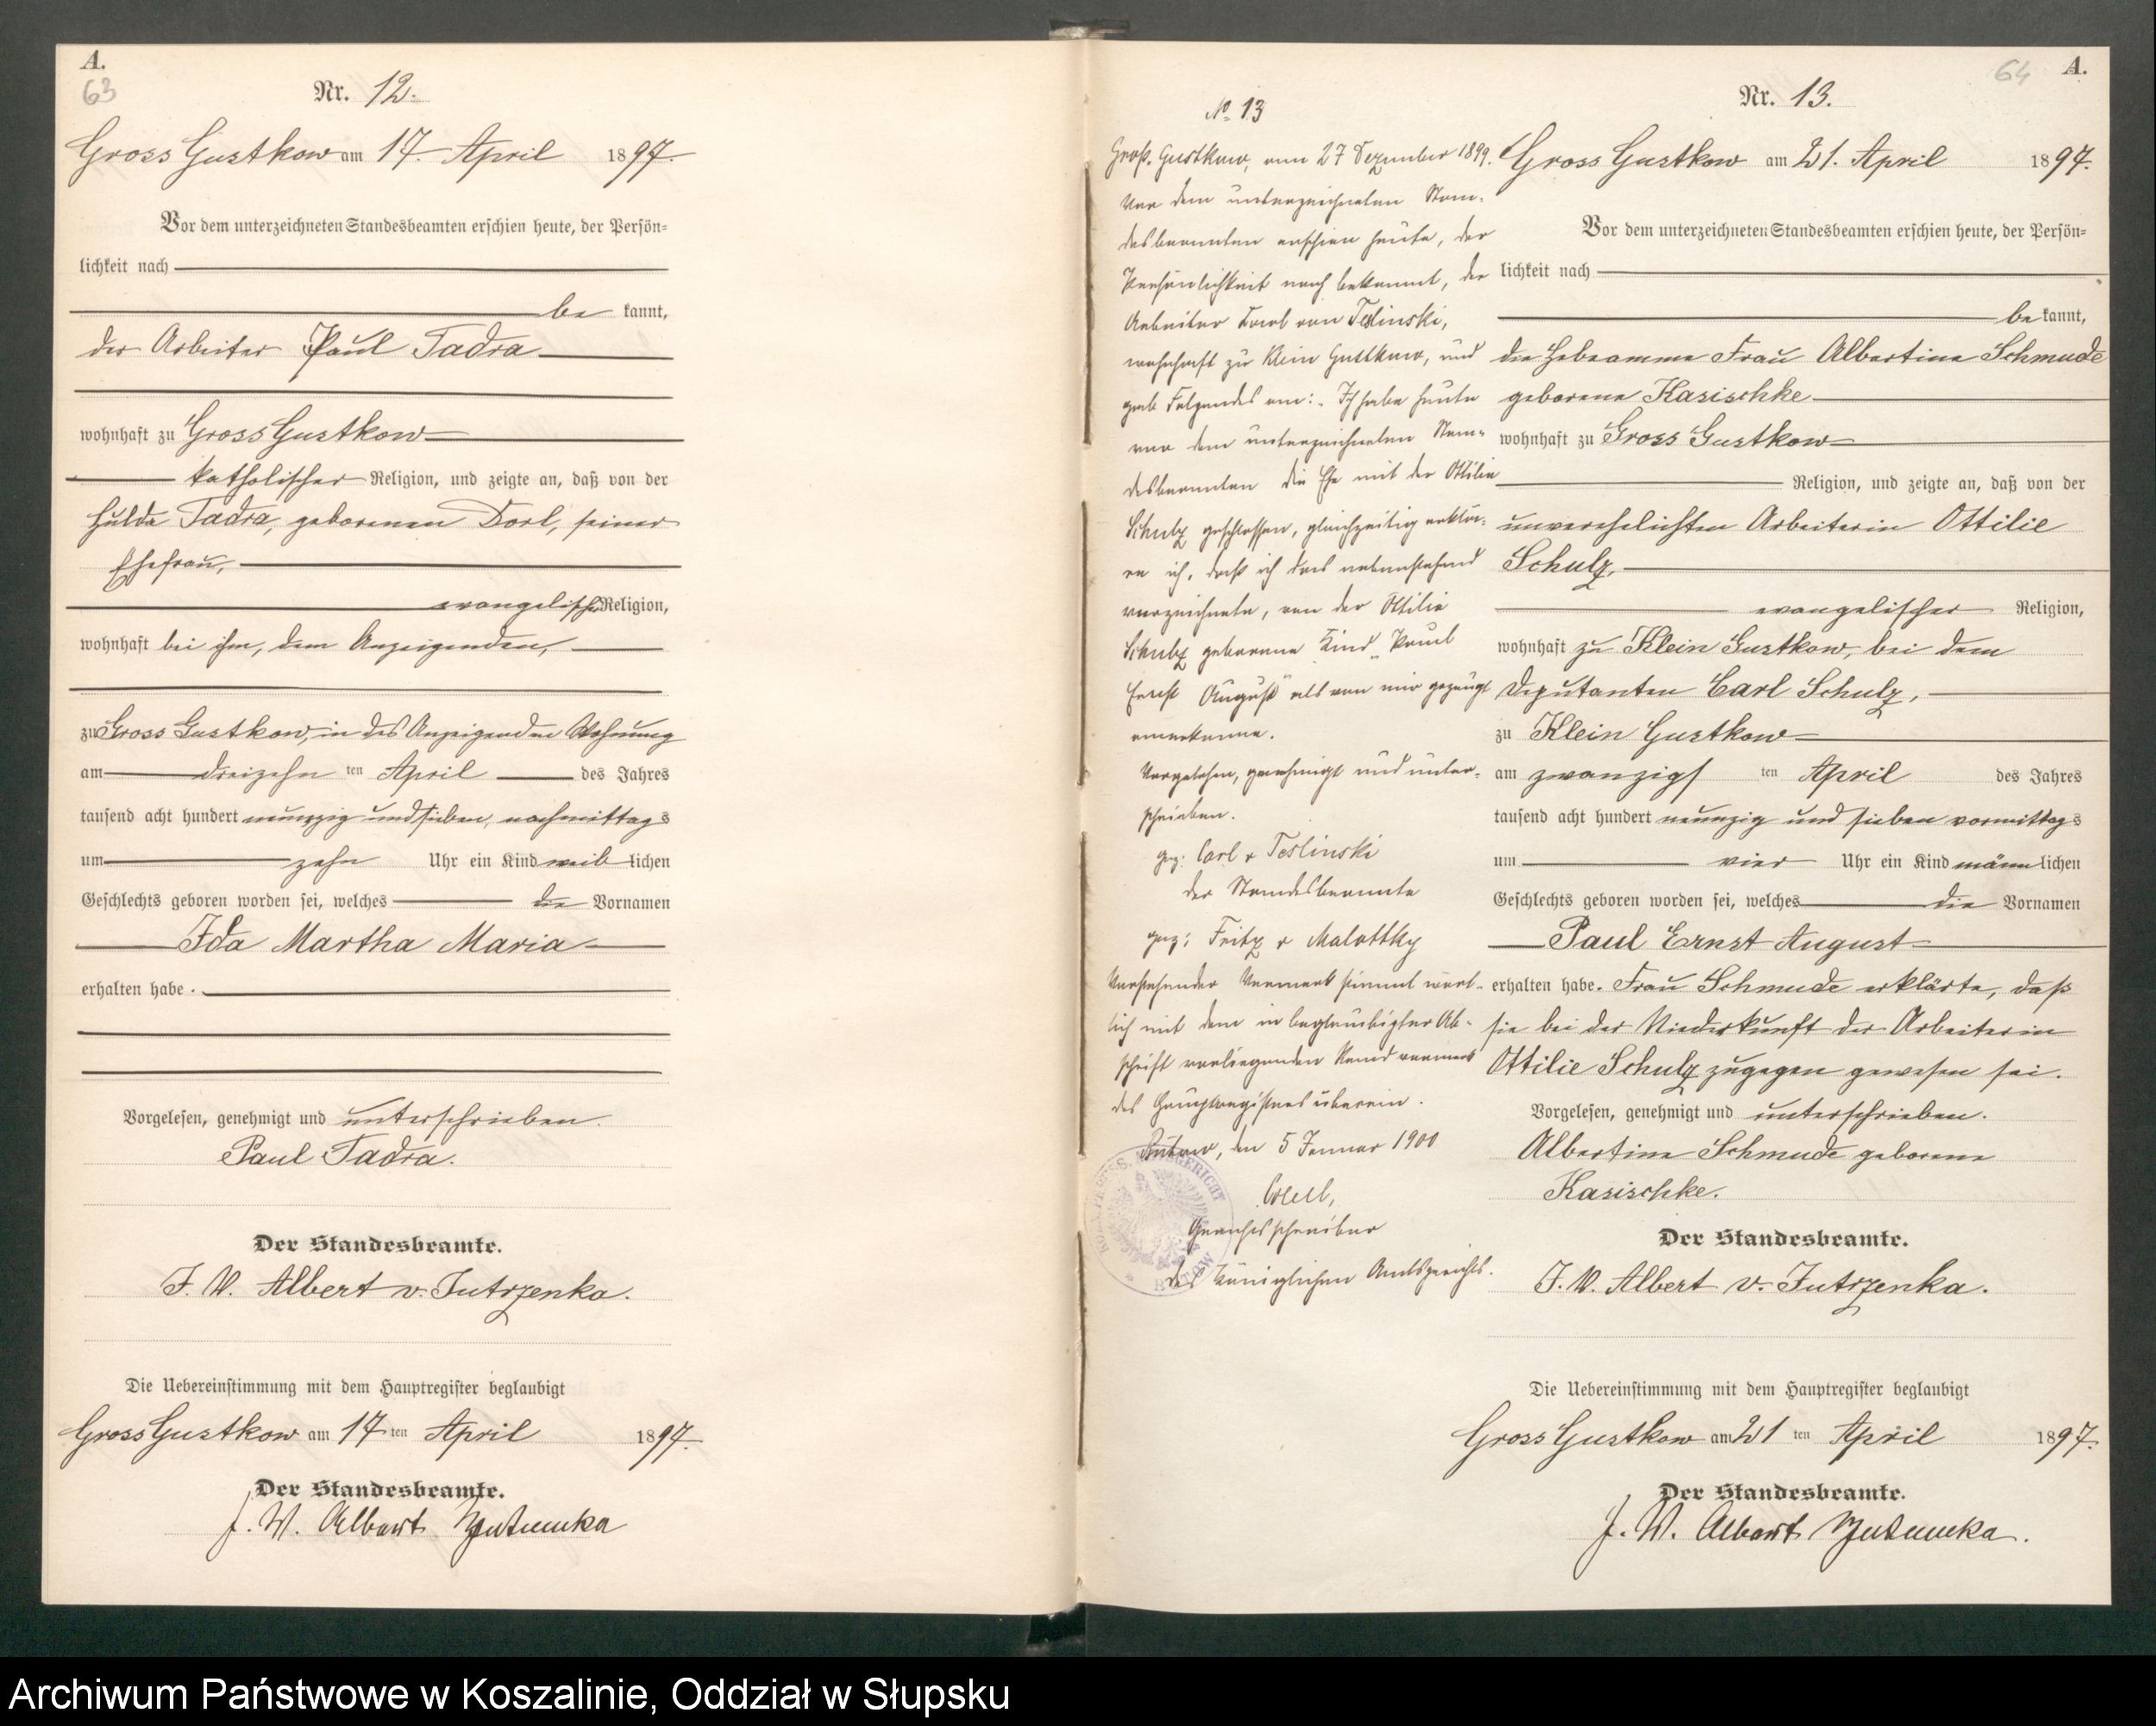 A.
63
Nr. 12.
Gross Gustkow am 17. April 1897.
Vor dem unterzeichneten Standesbeamten erschien heute, der Persön=
lichkeit nach
be kannt,
der Arbeiter Paul Tadra
wohnhaft zu Gross Gustkow
katholischer Religion, und zeigte an, daß von der
Hulda Tadra, geborenen Dorl, seiner
Ehefrau,
evangelisch Religion,
wohnhaft bei ihm, dem Anzeigenden,
zu Gross Gustkow, in des Anzeigenden Wohnung
am dreizehn ten April des Jahres
tausend acht hundert neunzig und sieben, nachmittags
um zehn Uhr ein Kind weib lichen
Geschlechts geboren worden sei, welches die Vornamen
Ida Martha Maria
erhalten habe.
Vorgelesen, genehmigt und unterschrieben.
Paul Tadra.
Der Standesbeamte.
J. V. Albert v. Jutrzenka.
Die Uebereinstimmung mit dem Hauptregister beglaubigt
Gross Gustkow am 17 ten April 1897.
Der Standesbeamte.
J. V. Albert Jutrzenka
No 13
Groß. Gustkow, am 27 Dezember 1899.
Vor dem unterzeichneten Stan=
desbeamten erschien heute, der
Persönlichkeit nach bekannt, der
Arbeiter Karl von Teslinski,
wohnhaft zu Klein Gustkow, und
gab Folgendes an: Ich habe heute
vor dem unterzeichneten Stan=
desbeamten die Ehe mit der Ottilie
Schulz geschlossen, gleichzeitig erklä=
re ich, daß ich das nebenstehend
verzeichnete, von der Ottilie
Schulz geborene Kind "Paul
Ernst August" als von mir gezeugt
anerkenne.
Vorgelesen, genehmigt und unter=
schrieben.
gez: Carl v Teslinski
der Standesbeamte
gez: Fritz v Malottky
Vorstehender Vermerk stimmt wört=
lich mit dem in beglaubigter Ab=
schrift vorliegenden Randvermerk
des Hauptregisters überein.
Bütow, den 5 Januar 1900
Gerichtsschreiber
des Königlichen Amtsgerichts.
64 A.
Nr. 13.
Gross Gustkow am 21. April 1897.
Vor dem unterzeichneten Standesbeamten erschien heute, der Persön=
lichkeit nach
be kannt,
die Hebeamme Frau Albertine Schmude
geborene Kasischke
wohnhaft zu Gross Gustkow
Religion, und zeigte an, daß von der
unverehelichten Arbeiterin Ottilie
Schulz,
evangelischer Religion,
wohnhaft zu Klein Gustkow, bei dem
Deputanten Carl Schulz,
zu Klein Gustkow
am zwanzigs ten April des Jahres
tausend acht hundert neunzig und sieben vormittags
um vier Uhr ein Kind männ lichen
Geschlechts geboren worden sei, welches die Vornamen
Paul Ernst August
erhalten habe. Frau Schmude erklärte, daß
sie bei der Niederkunft der Arbeiterin
Ottilie Schulz zugegen gewesen sei.
Vorgelesen, genehmigt und unterschrieben.
Albertine Schmude geborene
Kasischke.
Der Standesbeamte.
J. V. Albert v. Jutrzenka.
Die Uebereinstimmung mit dem Hauptregister beglaubigt
Gross Gustkow am 21 ten April 1897.
Der Standesbeamte.
J. V. Albert Jutrzenka.
Archiwum Państwowe w Koszalinie, Oddział w Słupsku